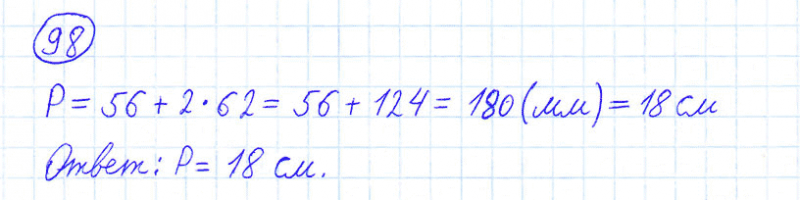 98
P = 56 + 2 · 62 = 56 + 124 = 180 (мм) = 18 см
Ответ: P = 18 см.